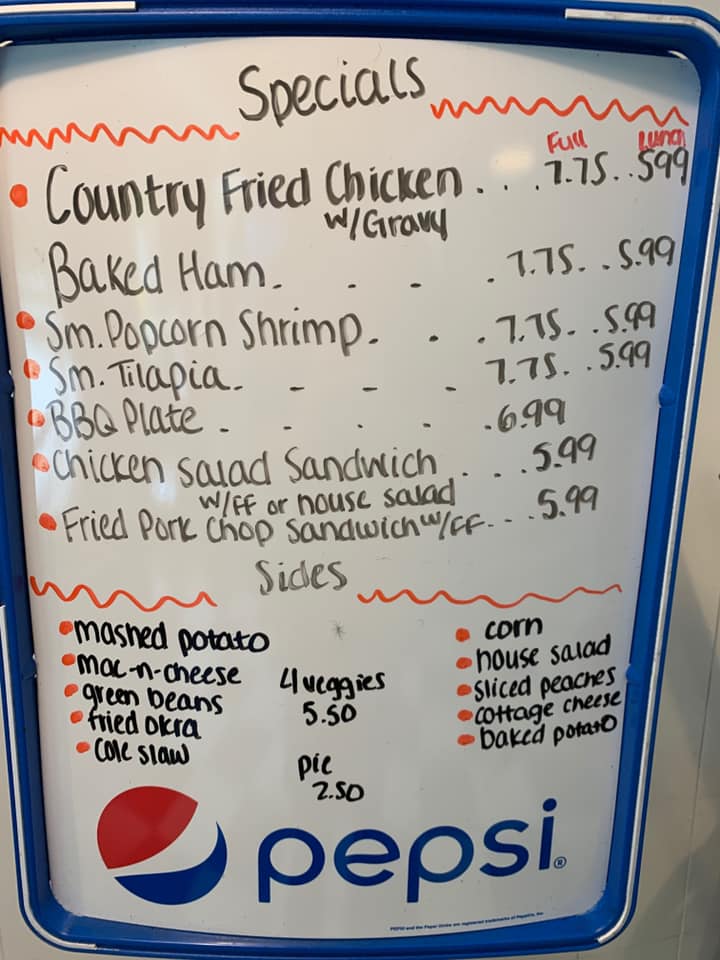 Specials
Full Lunch
Country Fried Chicken . . . 7.75 . . 5.99
w/Gravy
Baked Ham . . . . 7.75 . . 5.99
Sm. Popcorn Shrimp . . . 7.75 . . 5.99
Sm. Tilapia - - - - 7.75 . . 5.99
BBQ Plate . . . . . 6.99
Chicken salad Sandwich . . . 5.99
w/FF or house salad
Fried Pork Chop Sandwich w/FF - . . 5.99
Sides
mashed potato
mac-n-cheese
green beans
fried okra
Cole slaw
4 veggies
5.50
pie
2.50
corn
house salad
sliced peaches
cottage cheese
baked potato
pepsi®
PEPSI and the Pepsi Globe are registered trademarks of PepsiCo, Inc.